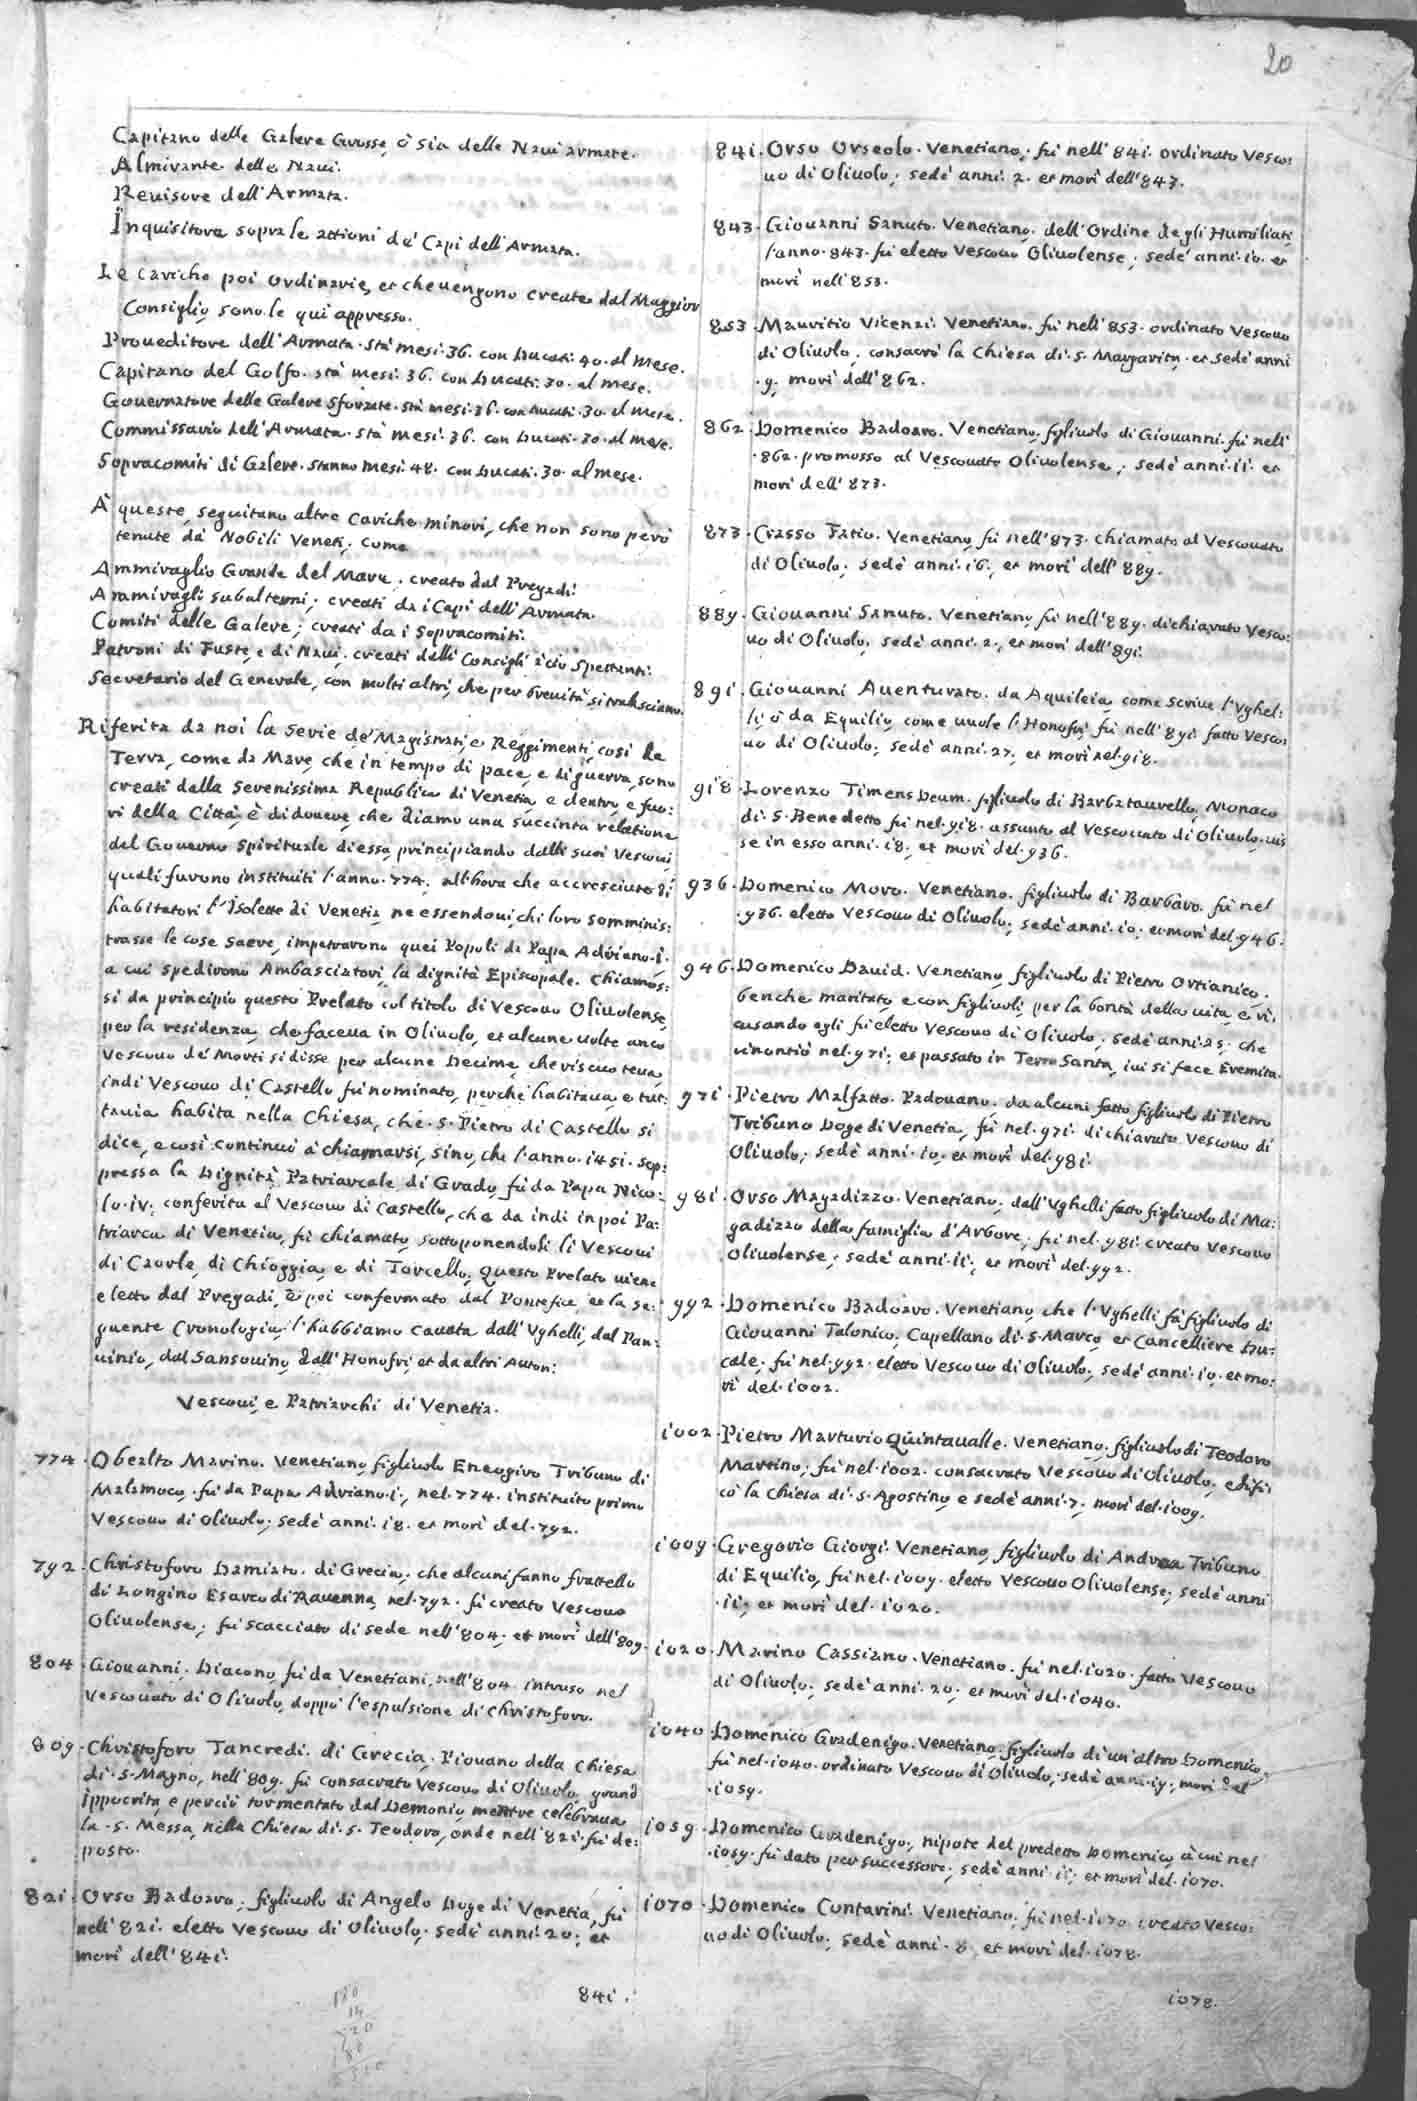 20
Capitano delle Galere Grosse, ò sia delle Naui armate.
Almirante delle Naui.
Reuisore dell'Armata.
Inquisitore sopra le attioni de' Capi dell'Armata.
Le cariche poi ordinarie, et che uengono create dal Maggior
Consiglio, sono le qui appresso.
Proueditore dell'Armata. stà mesi. 36. con Ducati. 40. al mese.
Capitano del Golfo. stà mesi. 36. con Ducati. 30. al mese.
Gouernatore delle Galere sforzate. stà mesi. 36. con Ducati. 30. al mese.
Commissario dell'Armata. stà mesi. 36. con Ducati. 30. al mese.
Sopracomiti di Galere. stanno mesi. 48. con Ducati. 30. al mese.
À queste, seguitano altre cariche minori, che non sono però
tenute dà Nobili Veneti; come
Ammiraglio Grande del Mare; creato dal Pregadi.
Armiragli subalterni; creati da i Capi dell'Armata.
Comiti delle Galere; creati da i Sopracomiti.
Patroni di Fuste, e di Naui. creati dalli Consigli à ciò spettanti.
Secretario del Generale, con molti altri, che per breuità si tralasciano.
Riferita da noi la serie de' Magistrati, e Reggimenti, così da
Terra, come da Mare, che in tempo di pace, e di guerra, sono
creati dalla Serenissima Republica di Venetia e dentro, e fuo:
ri della Città, è di douere, che diamo una succinta relatione
del Gouerno Spirituale di essa, principiando dalli suoi Vescoui,
quali furono instituiti l'anno. 774. all'hora che accresciuto di
habitatori l'Isolette di Venetia, ne essendoui, chi loro somminis:
trasse le cose sacre, impetrarono quei Popoli da Papa Adriano. i.
a cui spedirono Ambasciatori, la dignità Episcopale. Chiamos:
si da principio questo Prelato col titolo di Vescouo Oliuolense,
per la residenza, che faceua in Oliuolo, et alcune uolte anco
Vescouo de' Morti si disse per alcune Decime, che riscuoteua,
indi Vescouo di Castello fù nominato, perche habitaua, e tut:
tauia habita nella Chiesa, che. S. Pietro di Castello si
dice, e così continuò à chiamarsi, sino, che l'anno. i45i. sop:
pressa la Dignità Patriarcale di Grado, fù da Papa Nico:
lo. iv. conferita al Vescouo di Castello, che da indi in poi Pa:
triarca di Venetia, fù chiamato, sottoponendosi li Vescoui
di Caorle, di Chioggia, e di Torcello. Questo Prelato uiene
eletto dal Pregadi, è poi confermato dal Pontefice, et la se:
guente Cronologia, l'habbiamo cauata dall'Vghelli, dal Pan:
uinio, dal Sansouino, dall'Honofri, et da altri Autori:
Vescoui, e Patriarchi di Venetia.
774. Obealto Marino. Venetiano, figliuolo Eneogiro Tribuno di
Malamoco, fù da Papa Adriano. i., nel. 774. instituito primo
Vescouo di Oliuolo; sedè anni. i8. et morì del. 792.
792. Christoforo Damiato. di Grecia, che alcuni fanno frattello
di Longino Esarco di Rauenna, nel. 792. fù creato Vescouo
Oliuolense; fù scacciato di sede nell'804; et morì dell'809.
804. Giouanni. Diacono, fù da Venetiani, nell'804. intruso nel
Vescouato di Oliuolo, doppo l'espulsione di Christoforo.
809. Christoforo Tancredi. di Grecia. Piouano della Chiesa
di. S. Magno, nell'809. fù consacrato Vescouo di Oliuolo, grand
ippocrita, e perciò tormentato dal Demonio, mentre celebraua
la. S. Messa, nella Chiesa di. S. Teodoro, onde nell'82i. fù de:
posto.
82i. Orso Badoaro, figliuolo di Angelo Doge di Venetia, fù
nell'82i. eletto Vescouo di Oliuolo. sedè anni. 20; et
morì dell'84i.
84i.
84i. Orso Orseolo. Venetiano; fù nell'84i. ordinato Vesco:
uo di Oliuolo; sedè anni. 2. et morì dell'843.
843. Giouanni Sanuto. Venetiano. dell'Ordine degli Humiliati,
l'anno. 843. fù eletto Vescouo Oliuolense; sedè anni. io. et
morì nell'853.
853. Mauritio Vicenzi. Venetiano. fù nell'853. ordinato Vescouo
di Oliuolo; consacrò la Chiesa di. S. Margarita, et sedè anni
.9. morì dell'862.
862. Domenico Badoaro. Venetiano, figliuolo di Giouanni. fù nell'
.862. promosso al Vescouato Oliuolense; sedè anni. ii. et
morì dell'873.
873. Crasso Fatio. Venetiano, fù nell'873. chiamato al Vescouato
di Oliuolo; sedè anni. i6; et morì dell'889.
889. Giouanni Sanuto. Venetiano, fù nell'889. dichiarato Vesco:
uo di Oliuolo; sedè anni. 2; et morì dell'89i.
89i. Giouanni Auenturato. da Aquileia, come scriue l'Vghel:
li, ò da Equilio, come uuole l'Honofri, fù nell'89i. fatto Vesco:
uo di Oliuolo; sedè anni. 27; et morì nel. 9i8.
9i8. Lorenzo Timens Deum. figliuolo di Barbataurello, Monaco
di. S. Benedetto fù nel. 9i8. assunto al Vescouato di Oliuolo, uis
se in esso anni. i8; et morì del. 936.
936. Domenico Moro. Venetiano. figliuolo di Barbaro. fù nel
.936. eletto Vescouo di Oliuolo; sedè anni. io; et morì del. 946.
946. Domenico Dauid. Venetiano, figliuolo di Pietro Ortianico.
benche maritato, e con figliuoli, per la bontà della uita, e ri:
cusando egli fù eletto Vescouo di Oliuolo; sedè anni. 25; che
rinontiò nel. 97i; et passato in Terra Santa, iui si fece Eremita.
97i. Pietro Malfatto. Padouano. da alcuni fatto figliuolo di Pietro
Tribuno Doge di Venetia, fù nel. 97i. dichiarato Vescouo di
Oliuolo; sedè anni. io; et morì del. 98i.
98i. Orso Magadizzo. Venetiano; dall'Vghelli fatto figliuolo di Ma:
gadizzo della famiglia d'Arbore; fù nel. 98i. creato Vescouo
Oliuolense; sedè anni. ii; et morì del. 992.
992. Domenico Badoaro. Venetiano, che l'Vghelli fà figliuolo di
Giouanni Talonico, Capellano di. S. Marco, et Cancelliere Du:
cale; fù nel. 992. eletto Vescouo di Oliuolo; sedè anni. io. et mo:
rì del. i002.
i002. Pietro Marturio Quintaualle. Venetiano, figliuolo di Teodoro
Martino; fù nel. i002. consacrato Vescouo di Oliuolo, edifi:
cò la Chiesa di. S. Agostino, e sedè anni. 7; morì del. i009.
i009. Gregorio Giorgi. Venetiano, figliuolo di Andrea Tribuno
di Equilio, fù nel. i009. eletto Vescouo Oliuolense; sedè anni
.ii; et morì del. i020.
i020. Marino Cassiano. Venetiano. fù nel. i020. fatto Vescouo
di Oliuolo; sedè anni. 20; et morì del. i040.
i040. Domenico Gradenigo. Venetiano, figliuolo di un'altro Domenico,
fù nel. i040. ordinato Vescouo di Oliuolo; sedè anni. i9; morì del
.i059.
i059. Domenico Gradenigo, nipote del predetto Domenico, à cui nel
.i059. fù dato per successore; sedè anni. ii; et morì del. i070.
i070. Domenico Contarini. Venetiano, fù nel. i070. creato Vesco:
uo di Oliuolo; sedè anni. 8. et morì del. i078.
i078.